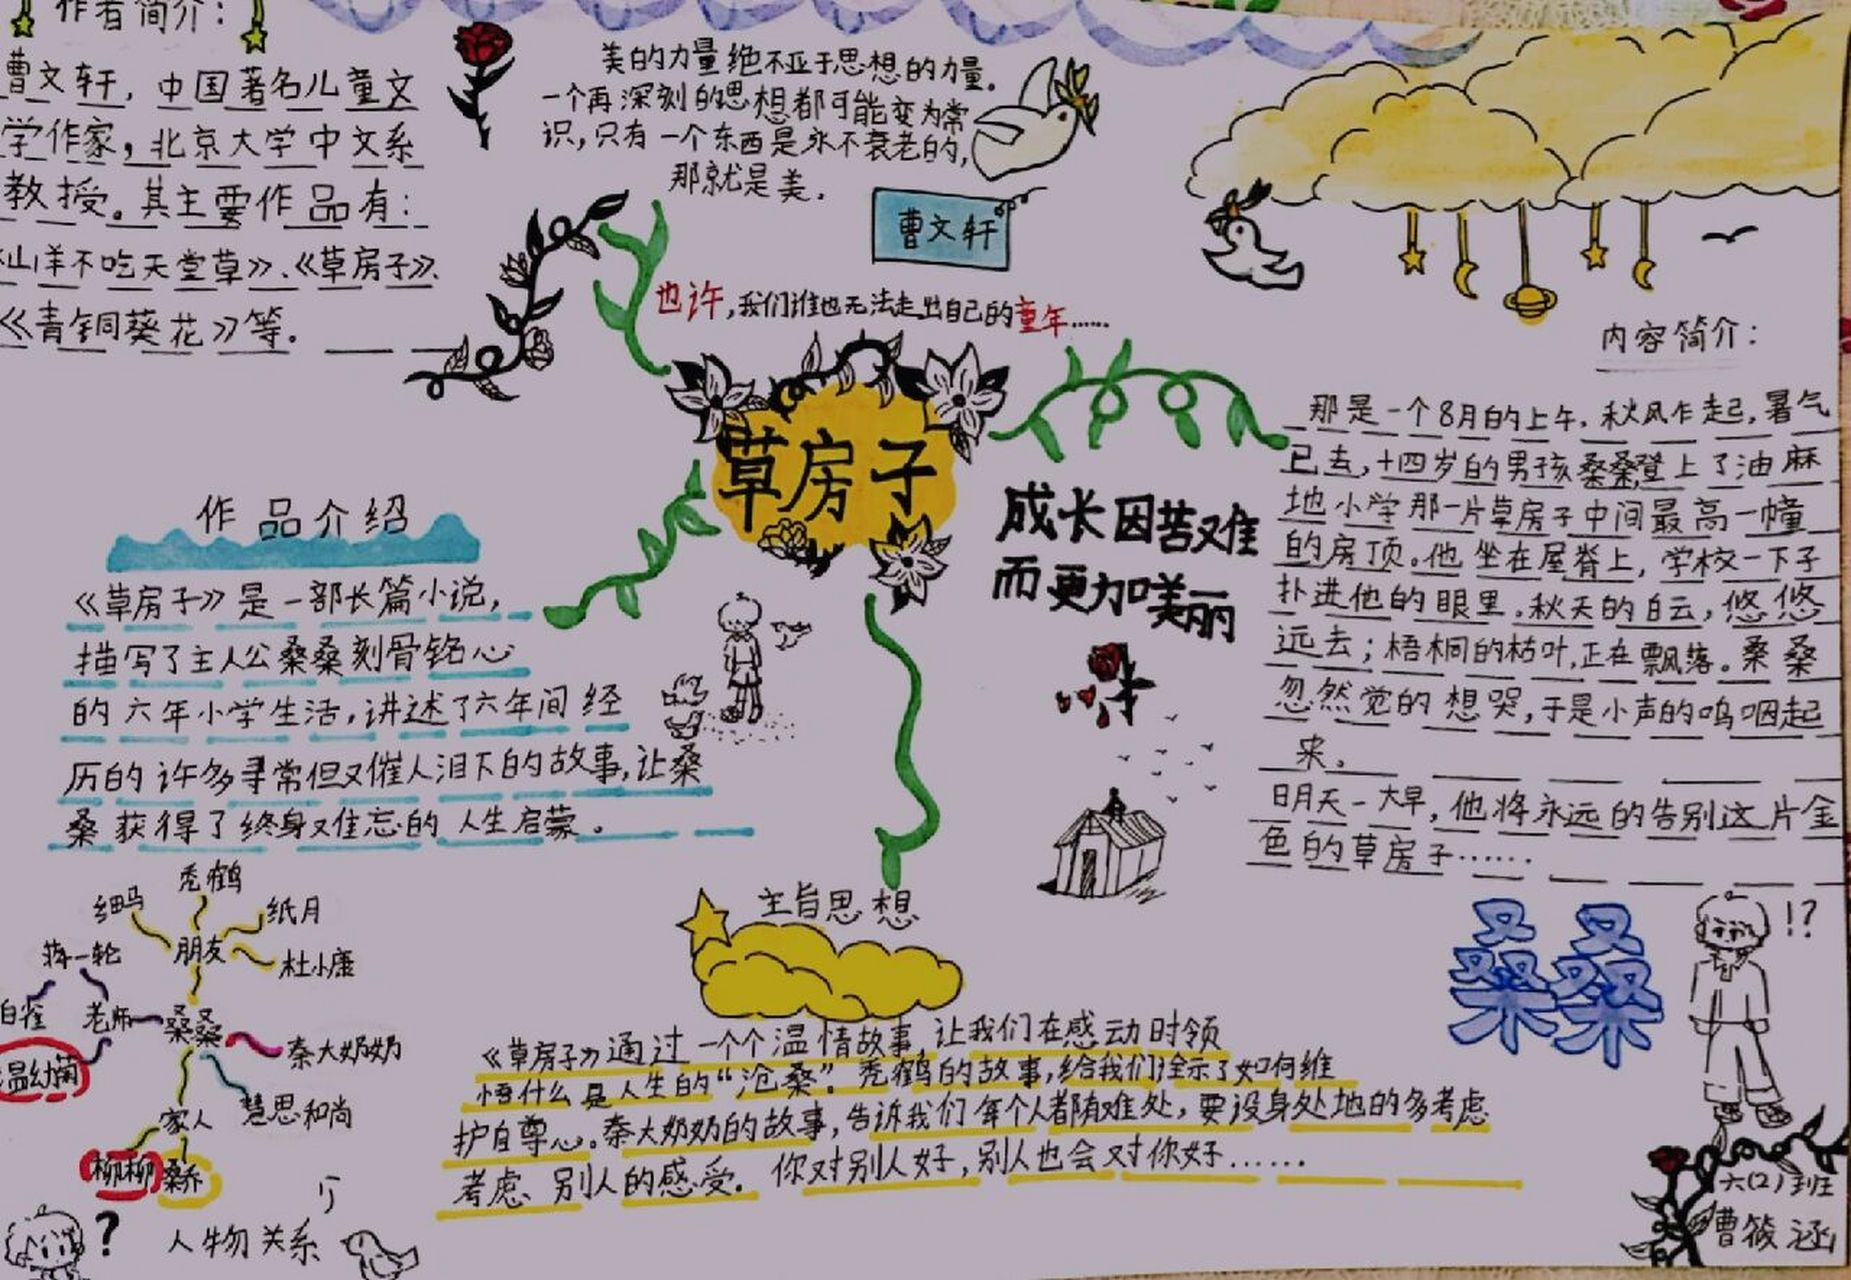 作者简介：
曹文轩，中国著名儿童文
学作家，北京大学中文系
教授。其主要作品有：
山羊不吃天堂草》、《草房子》、
《青铜葵花》等。
美的力量绝不亚于思想的力量。
一个再深刻的思想都可能变为常
识，只有一个东西是永不衰老的，
那就是美。
曹文轩
也许，我们谁也无法走出自己的童年……
草房子
成长因苦难
而更加美丽
作品介绍
《草房子》是一部长篇小说，
描写了主人公桑桑刻骨铭心
的六年小学生活，讲述了六年间经
历的许多寻常但又催人泪下的故事，让桑
桑获得了终身难忘的人生启蒙。
内容简介：
那是一个8月的上午，秋风乍起，暑气
已去，十四岁的男孩桑桑登上了油麻
地小学那一片草房子中间最高一幢
的房顶。他坐在屋脊上，学校一下子
扑进他的眼里。秋天的白云，悠悠
远去；梧桐的枯叶，正在飘落。桑桑
忽然觉的想哭，于是小声的呜咽起
来。
明天一大早，他将永远的告别这片金
色的草房子……
秃鹤
细马
纸月
朋友
杜小康
蒋一轮
白雀
老师
桑桑
秦大奶奶
温幼菊
慧思和尚
家人
柳柳
桑乔
?
人物关系
主旨思想
《草房子》通过一个个温情故事，让我们在感动时领
悟什么是人生的“沧桑”。秃鹤的故事，给我们诠示了如何维
护自尊心。秦大奶奶的故事，告诉我们每个人都有难处，要设身处地的多考虑
考虑别人的感受。你对别人好，别人也会对你好……
桑桑
!?
六(2)班
曹筱涵